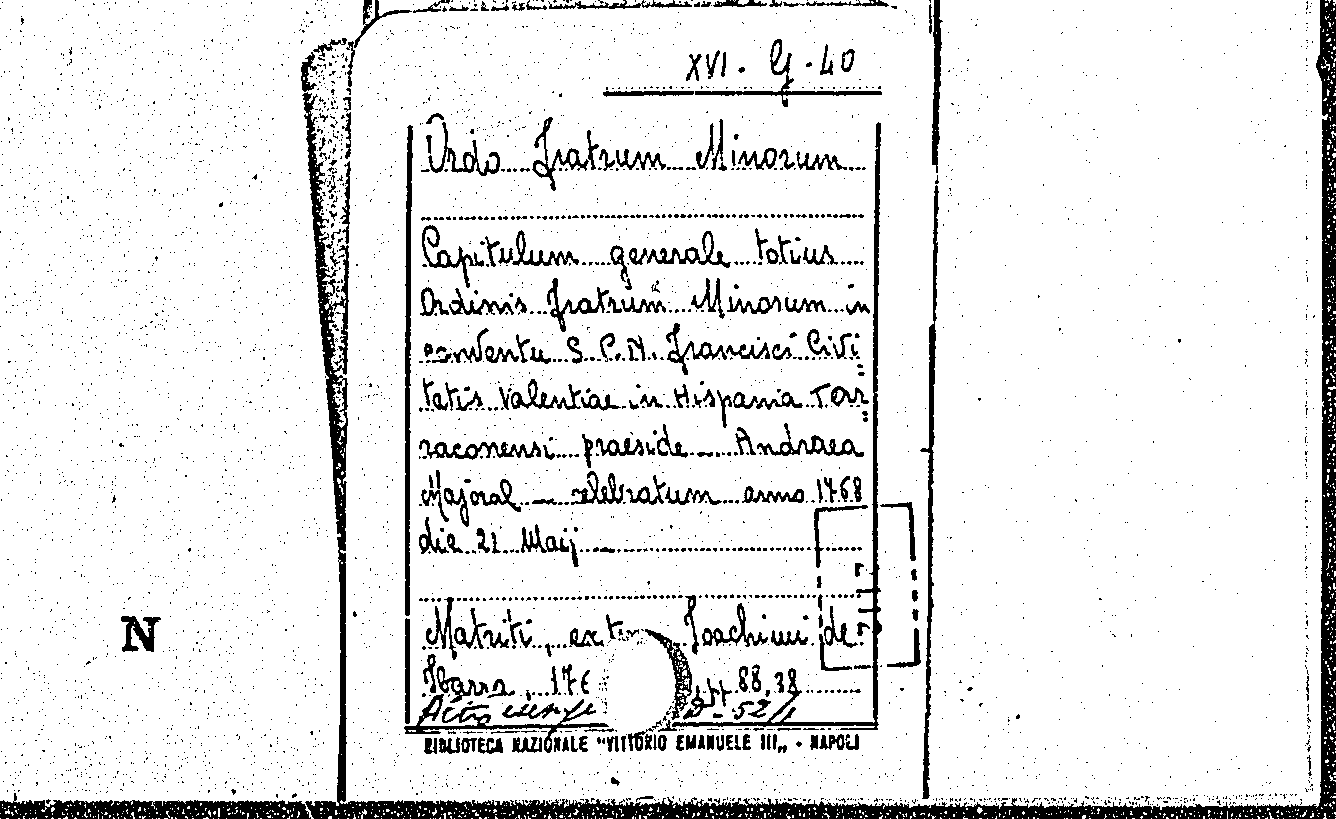 XVI. G. 40
Ordo Fratrum Minorum
Capitulum generale totius
Ordinis Fratrum Minorum in
conventu S. P. N. Francisci Civi=
tatis Valentiae in Hispania Tar=
raconensi praeside - Andraea
Majoral - celebratum anno 1768
die 21 Maij -
Matriti, ex Joachimi de
Ibarra, 176 pp 88, 38
52/1
BIBLIOTECA NAZIONALE "VITTORIO EMANUELE III„ - NAPOLI
N